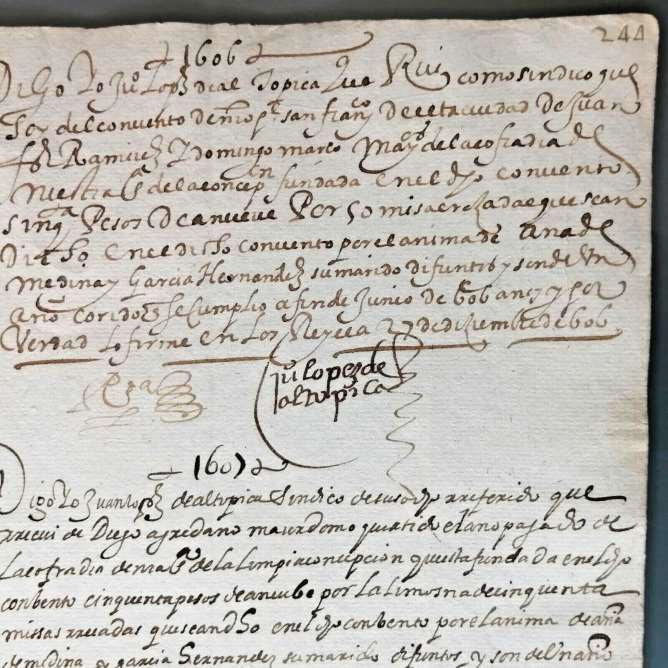 244
1606
Digo Yo Juº Lopez de al topica que Rui como sindico que
Soy del convento de nro pe san franco De esta ciudad de Juan
Ramirez Y Domingo Marto may mos de la cofradia de
nuestra sa de la concepon fundada en el dho convento
sinqta Pesos De a nueve Por 50 misas reçadas que se an
Dicho en el disho convento por el anima de ana de
medina y Garcia Hernandez su marido difuntos y son de Un
año corido q se Cumplio a fin de Junio de 606 anos y por
Verdad lo firme en Los Reyes a 27 de diziembre de 606
juº lopez de
altopica
1607
Digo Yo Juan lopez de altopica Sindico de suso dho y referido que
rreciui de Diego agredano maiordomo que a sido el año pasado de
la cofradia de nra sa de la limpia concepcion questa fundada en el dho
conbento cinquenta pesos de a nuebe por la limosna de cinquenta
missas rreçadas que se an dho en el dho conbento por el anima de ana
de medina y garcia hernandez su marido difuntos y son del año